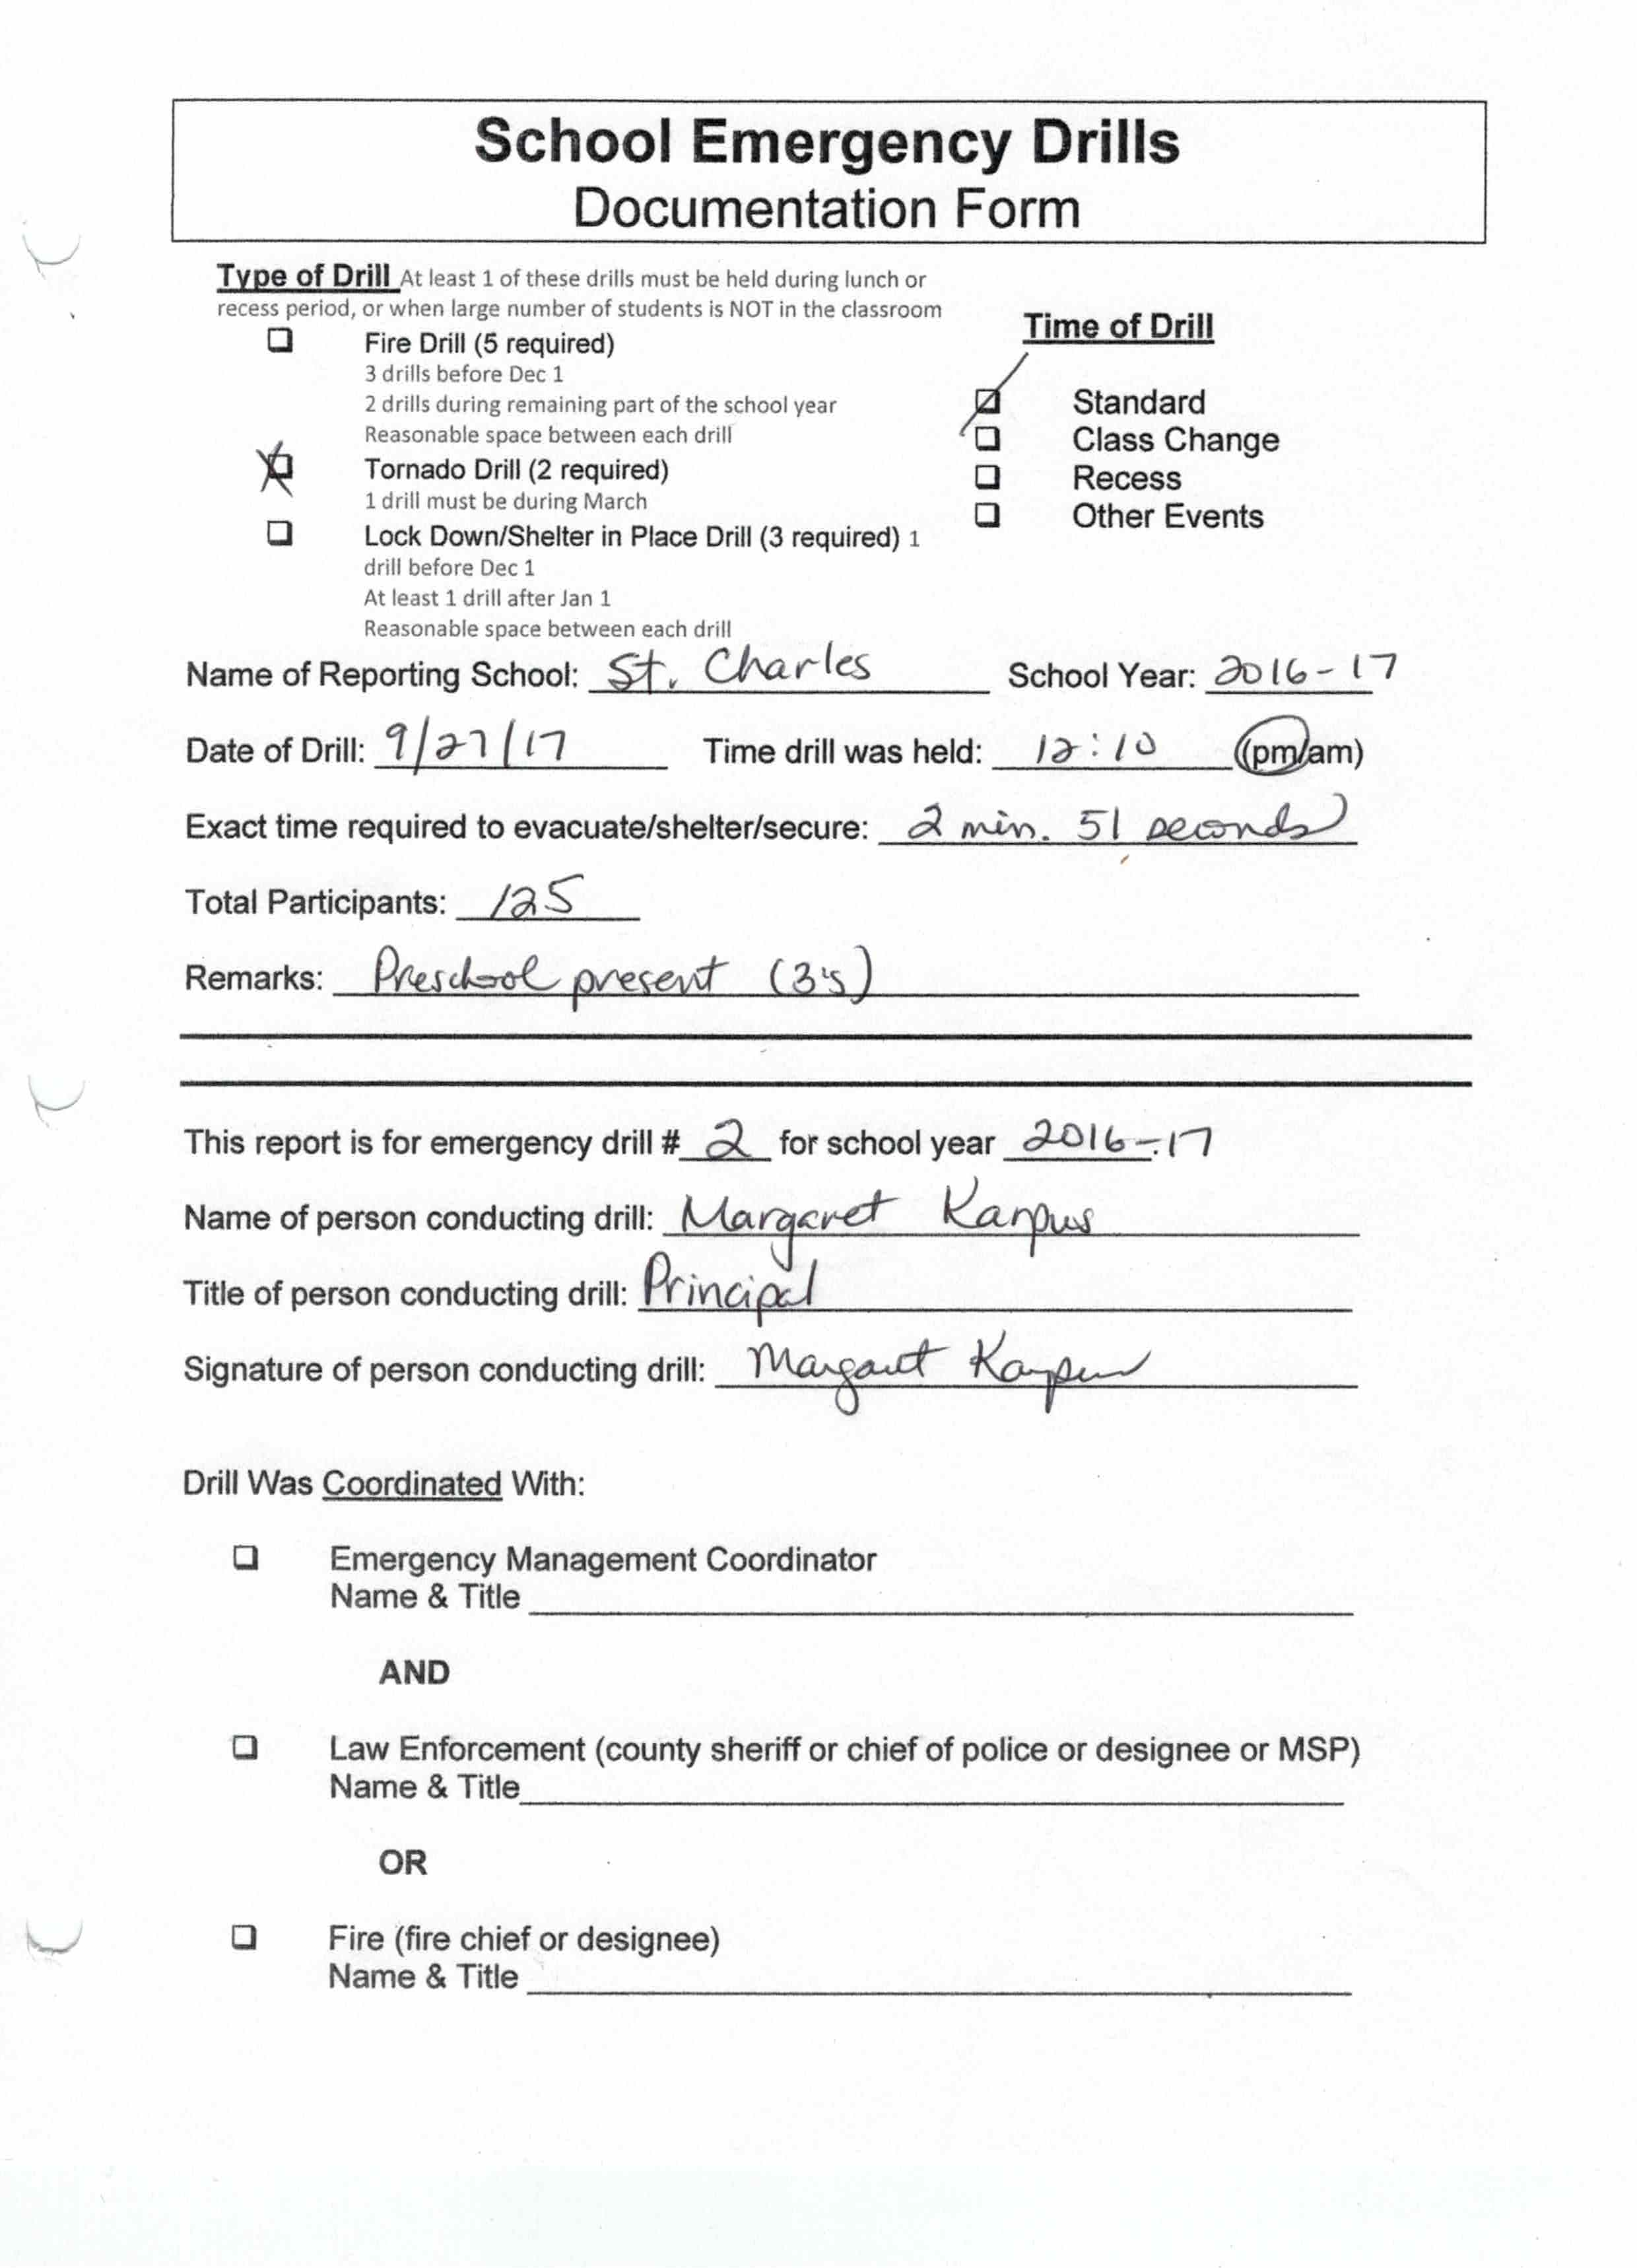 School Emergency Drills
Documentation Form
Type of Drill At least 1 of these drills must be held during lunch or
recess period, or when large number of students is NOT in the classroom
Time of Drill
Fire Drill (5 required)
3 drills before Dec 1
2 drills during remaining part of the school year
Standard
Reasonable space between each drill
Class Change
Tornado Drill (2 required)
Recess
1 drill must be during March
Other Events
Lock Down/Shelter in Place Drill (3 required) 1
drill before Dec 1
At least 1 drill after Jan 1
Reasonable space between each drill
Name of Reporting School: St. Charles School Year: 2016-17
Date of Drill: 9/27/17 Time drill was held: 12:10 (pm/am)
Exact time required to evacuate/shelter/secure: 2 min. 51 seconds
Total Participants: 125
Remarks: Preschool present (3's)
This report is for emergency drill # 2 for school year 2016-17
Name of person conducting drill: Margaret Karpus
Title of person conducting drill: Principal
Signature of person conducting drill: Margaret Karpus
Drill Was Coordinated With:
Emergency Management Coordinator
Name & Title
AND
Law Enforcement (county sheriff or chief of police or designee or MSP)
Name & Title
OR
Fire (fire chief or designee)
Name & Title